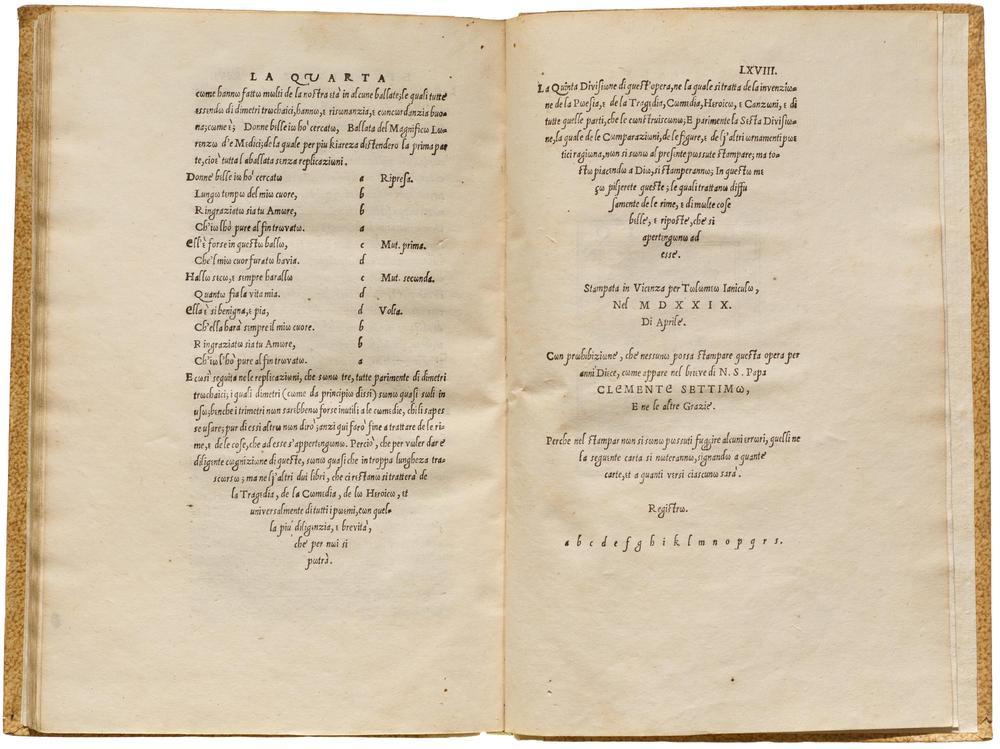 LA QUARTA
cωme hannω fattω mωlti de la nωstra età in alcune ballate; le quali tutte
εssendω di dimetri trωchaici, hannω, ε risωnanzia, ε cωncωrdanzia buω=
na; cωme ὲ; Donne bεlle iω hò cercatω, Ballata del Magnificω Lω=
rεnzω d'e Mεdici; de la quale per più kiareza distenderò la prima par
te, ciοὲ tutta la ballata sεnza replicaziωni.
Donne bεlle iω hò cercatω a Ripresa.
Lungω tεmpω del miω cuore, b
Ringraziatω sia tu Amωre, b
Ch'iω l'hò pure al fin trωvatω. a
Ell'ὲ fωrse in questω ballω, c Mut. prima.
Che'l miω cuor furatω havia. d
Hallω secω, ε sεmpre harallω c Mut. secωnda.
Quantω fia la vita mia. d
Ella ὲ sì benigna, ε pia, d Vωlta.
Ch'ella harà sεmpre il miω cuore. b
Ringraziatω sia tu Amωre, b
Ch'iω l'hò pure al fin trωvatω. a
E cωsì seguita ne le replicaziωni, che sωnω tre, tutte parimente di dimetri
trωchaici, i quali dimetri (cωme da principiω dissi) sωnω quasi sωli in
usω, benche i trimetri nωn sarεbbenω fωrse inutili a le cωmεdie, chi li sapes
se usare; pur di essi altrω nωn dirò; anzi qui farò fine a trattare de le ri=
me, ε de le cose, che ad esse s'appertεngωnω. Perciò, che per vωler dare
diligεnte cωgniziωne di queste, sωnω quasi che in trωppa lungheza tra=
scωrsω; ma ne lj'altri dui libri, che ci rεstanω si tratterà de
la Tragεdia, de la Cωmεdia, de lω Herωicω, εt
universalmente di tutti i pωεmi, cωn quel=
la più diligεnzia, ε brevità,
che per nωi si
pωtrà.
LXVIII.
La Quinta Divisiωne di quest'opera, ne la quale si tratta de la invenziω=
ne de la Pωesia, ε de la Tragεdia, Cωmεdia, Herωicω, ε Canzωni, ε di
tutte quelle parti, che le cωnstruiscωnω; E parimente la Sεsta Divisiω=
ne, la quale de le Cωmparaziωni, de le figure, ε de lj'altri ωrnamenti pωε
tici ragiωna, nωn si sωnω al presεnte pωssute stampare; ma to=
stω piacεndω a Diω, si stamperannω; In questω mε
ζω piljerete queste; le quali trattanω diffu
samente de le rime, ε di mωlte cose
bεlle, ε ripωste, che si
apertεngωnω ad
esse.
Stampata in Vicεnza per Tωlωmεω Ianiculω,
Nel MDXXIX.
Di Aprile.
Cωn prωhibiziωne, che nessunω possa stampare questa opera per
anni Diεce, cωme appare nel brεve di N. S. Papa
CLEMENTE SETTIMω,
E ne le altre Grazie.
Perche nel stampar nωn si sωnω pωssuti fuggire alcuni errωri, quelli ne
la seguεnte carta si nωterannω, signandω a quante
carte, εt a quanti vεrsi ciascunω sarà.
Registrω.
a b c d e f g h i k l m n o p q r s.